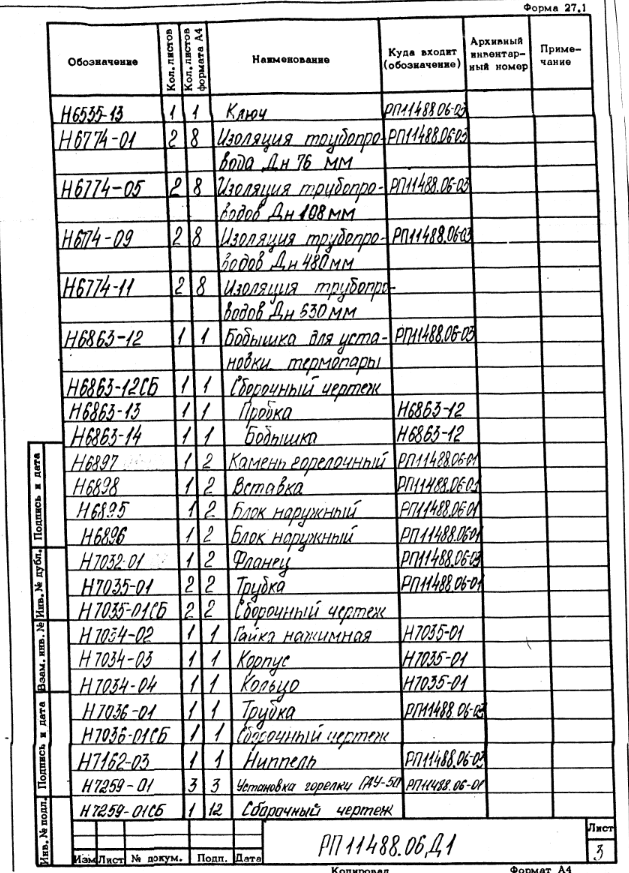 Форма 27.1
Обозначение Кол. листов Кол. листов формата А4 Наименование Куда входит (обозначение) Архивный инвентарный номер Примечание
Н6535-13 1 1 Ключ РП11488.06-03
Н6774-01 2 8 Изоляция трубопро- РП11488.06-03
вода Дн 76 мм
Н6774-05 2 8 Изоляция трубопро- РП11488.06-03
водов Дн 108 мм
Н674-09 2 8 Изоляция трубопро- РП11488.06-03
водов Дн 480 мм
Н6774-11 2 8 Изоляция трубопро-
водов Дн 530 мм
Н6863-12 1 1 Бобышка для уста- РП11488.06-03
новки термопары
Н6863-12СБ 1 1 Сборочный чертеж
Н6863-13 1 1 Пробка Н6863-12
Н6863-14 1 1 Бобышка Н6863-12
Н6897 1 2 Камень горелочный РП11488.06-01
Н6898 1 2 Вставка РП11488.06-01
Н6895 1 2 Блок наружный РП11488.06-01
Н6896 1 2 Блок наружный РП11488.06-01
Н7032-01 1 2 Фланец РП11488.06-03
Н7035-01 2 2 Трубка РП11488.06-01
Н7035-01СБ 2 2 Сборочный чертеж
Н7034-02 1 1 Гайка нажимная Н7035-01
Н7034-03 1 1 Корпус Н7035-01
Н7034-04 1 1 Кольцо Н7035-01
Н7036-01 1 1 Трубка РП11488.06-03
Н7036-01СБ 1 1 Сборочный чертеж
Н7162-03 1 1 Ниппель РП11488.06-03
Н7259-01 3 3 Установка горелки ГАУ-50 РП11488.06-01
Н7259-01СБ 1 12 Сборочный чертеж
Подпись и дата
Инв. № дубл.
Взам. инв. №
Подпись и дата
Инв. № подл.
Изм Лист № докум. Подп. Дата
РП11488.06.Д1
Лист
3
Копировал Формат А4